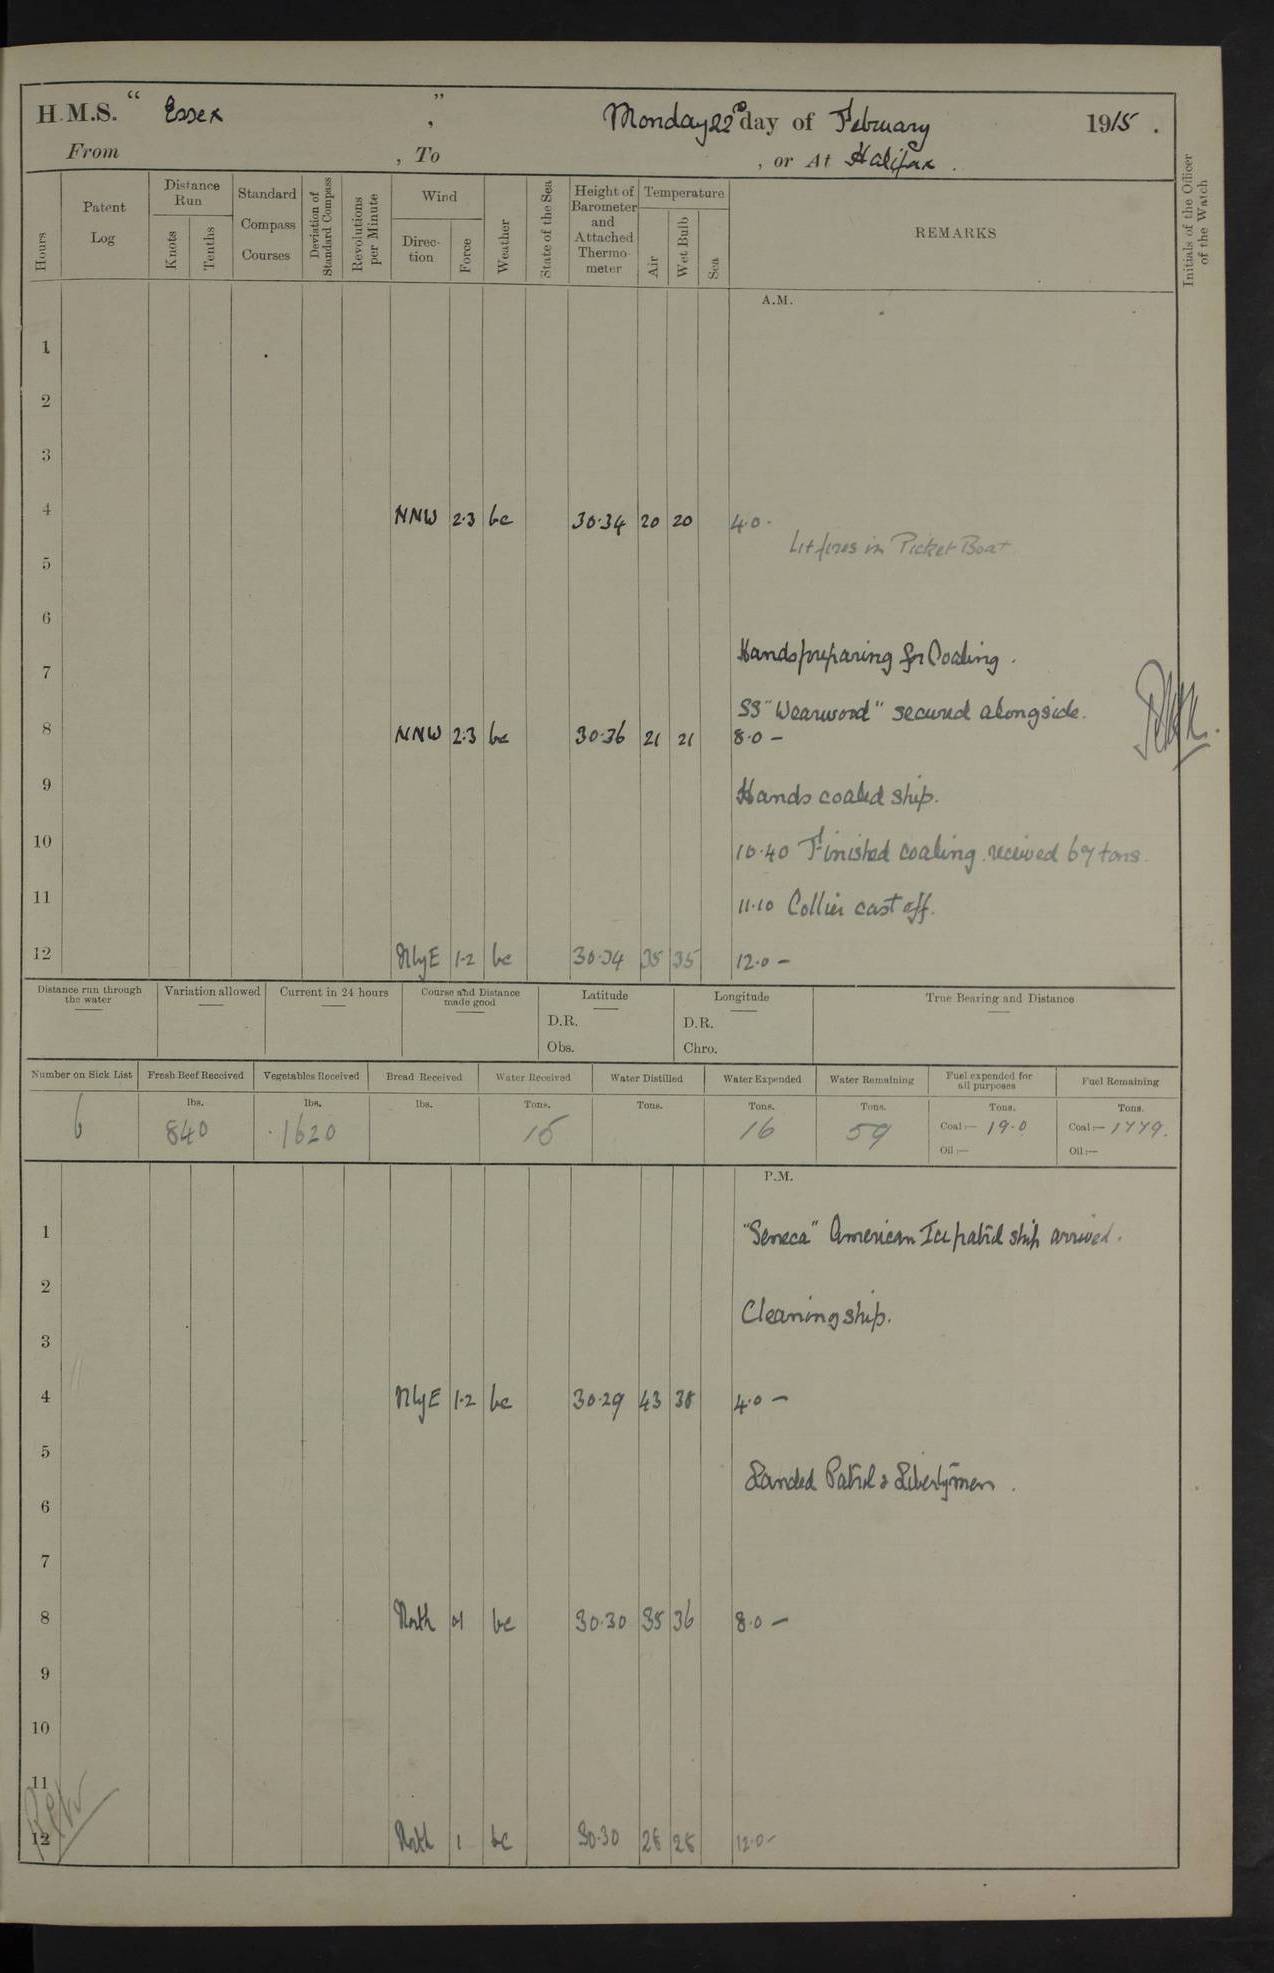 H.M.S. " Essex " , Monday 22nd day of February 1915 .
From , To , or At Halifax .
Hours
Patent Log
Distance Run
Knots
Tenths
Standard Compass Courses
Deviation of Standard Compass
Revolutions per Minute
Wind
Direc-tion
Force
Weather
State of the Sea
Height of Barometer and Attached Thermo-meter
Temperature
Air
Wet Bulb
Sea
REMARKS
Initials of the Officer of the Watch
A.M.
1
2
3
4 NNW 2·3 bc 30·34 20 20 4·0 ·
Lit fires in Picket Boat
5
6
Hands preparing for Coaling .
7
SS "Wearwood" secured alongside.
8 NNW 2·3 bc 30·36 21 21 8·0 –
9 Hands coaled ship.
10 10·40 Finished coaling. received 67 tons.
11 11·10 Collier cast off.
12 NbyE 1-2 bc 30·34 35 35 12·0 –
Distance run through the water
Variation allowed
Current in 24 hours
Course and Distance made good
Latitude
D.R.
Obs.
Longitude
D.R.
Chro.
True Bearing and Distance
Number on Sick List
Fresh Beef Received
Vegetables Received
Bread Received
Water Received
Water Distilled
Water Expended
Water Remaining
Fuel expended for all purposes
Fuel Remaining
lbs. lbs. lbs. Tons. Tons. Tons. Tons. Tons. Tons.
6 840 1620 15 16 59 Coal:— 19·0 Coal:— 1779.
Oil:— Oil:—
P.M.
1 "Seneca" American Ice patrol ship arrived.
2
Cleaning ship.
3
4 NbyE 1·2 bc 30·29 43 38 4·0 –
5
Landed Patrol & Libertymen .
6
7
8 North 01 bc 30·30 35 36 8·0 –
9
10
11
12 North 1 bc 30·30 28 28 12·0 –